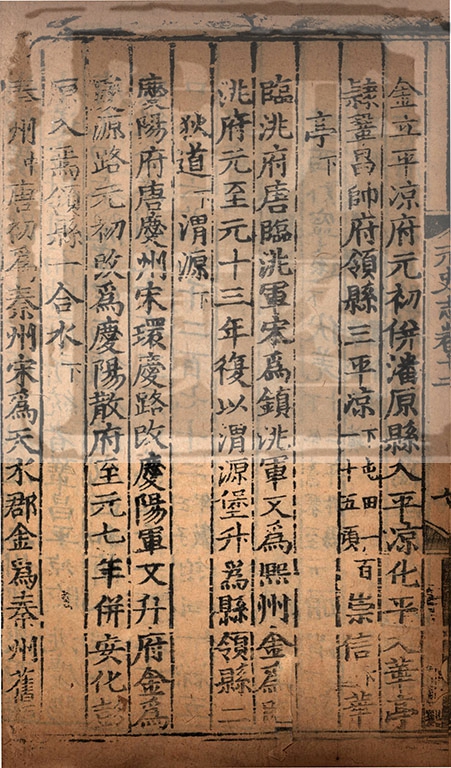 金立平涼府元初併潘原縣入平涼化平入華亭
隸鞏昌帥府領縣三平涼下屯田一百一十五頃崇信下華
亭下
臨洮府唐臨洮軍宋爲鎮洮軍又爲熙州金爲臨
洮府元至元十三年復以渭源堡升爲縣領縣二
狄道下渭源下
慶陽府唐慶州宋環慶路改慶陽軍又升府金爲
慶源路元初改爲慶陽散府至元七年併安化彭
原入焉領縣一合水下
秦州中唐初爲秦州宋爲天水郡金爲秦州舊
元史志卷十二